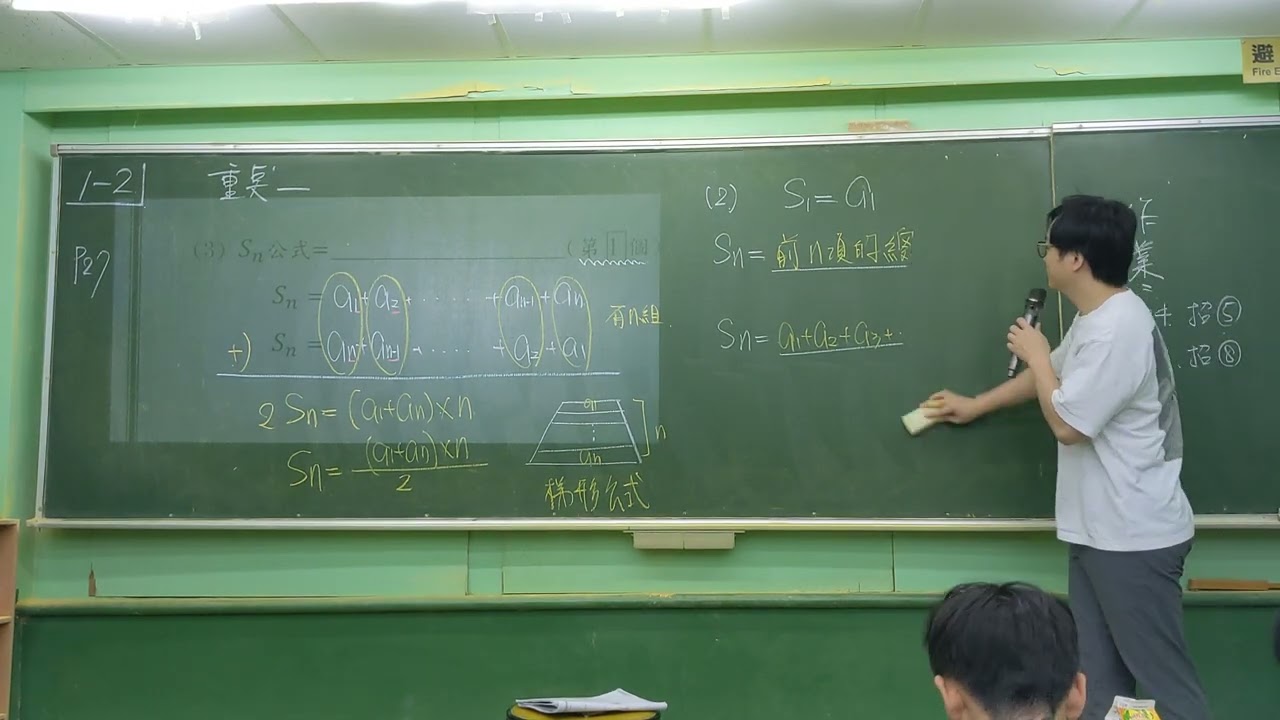 避
Fire E
1-2
重點一
P27
(3) Sn公式=＿＿＿＿＿＿(第1個
Sn = a1+a2+......+an-1+an
有n組
+) Sn = an+an-1+.....+a2+a1
2Sn=(a1+an)×n
Sn=(a1+an)×n/2
a1
⋮
an
n
梯形公式
(2) S1=a1
Sn=前n項的總
Sn=a1+a2+a3+..
作業:
招⑤
招⑧